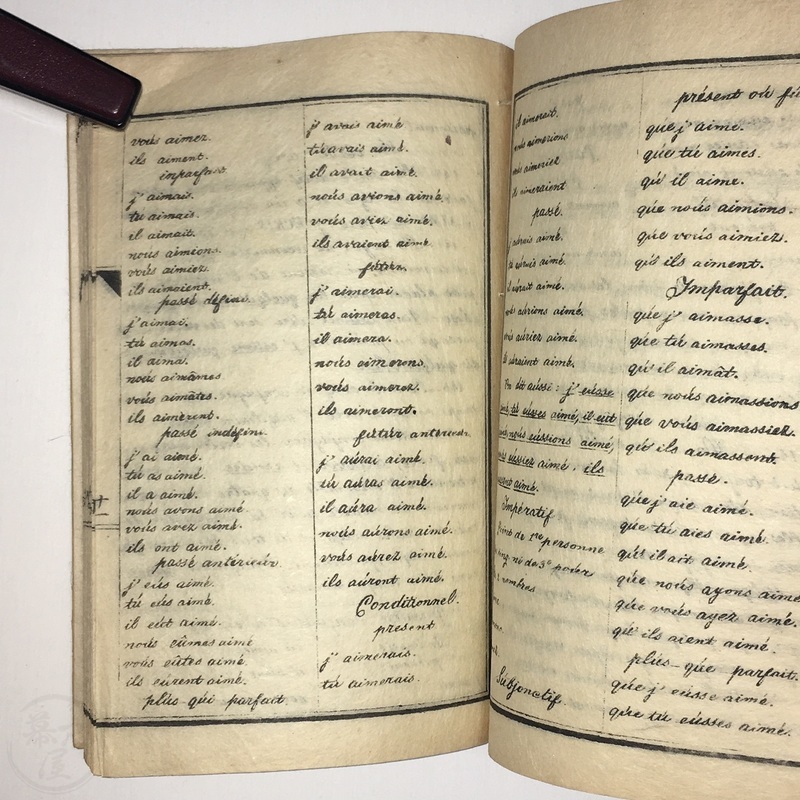 vous aimez.
ils aiment.
imparfait.
j'aimais.
tu aimais.
il aimait.
nous aimions.
vous aimiez.
ils aimaient.
passé défini.
j'aimai.
tu aimas.
il aima.
nous aimâmes
vous aimâtes.
ils aimèrent.
passé indéfini.
j'ai aimé.
tu as aimé.
il a aimé.
nous avons aimé
vous avez aimé.
ils ont aimé.
passé antérieur.
j'eus aimé.
tu eus aimé.
il eut aimé.
nous eûmes aimé
vous eûtes aimé.
ils eurent aimé.
plus-qui parfait.
j'avais aimé
tu avais aimé.
il avait aimé.
nous avions aimé.
vous aviez aimé.
ils avaient aimé.
fútúr.
j'aimerai.
tu aimeras.
il aimera.
nous aimerons.
vous aimerez.
ils aimeront.
fútúr antérieur.
j'aurai aimé.
tu auras aimé.
il aura aimé.
nous aurons aimé.
vous aurez aimé.
ils auront aimé.
Conditionnel.
présent
j'aimerais.
tu aimerais.
il aimerait.
nous aimerions
vous aimeriez
ils aimeraient
passé.
j'aurais aimé.
tu aurais aimé.
il aurait aimé.
nous aurions aimé.
vous auriez aimé.
ils auraient aimé.
On dit aussi: j'eusse
aimé, tu eusses aimé, il eut
aimé, nous eussions aimé,
vous eussiez aimé. ils
eussent aimé.
Impératif
Point de 1re personne
ni de 3e pour
nombres
Subjonctif.
présent ou
que j'aime.
que tu aimes.
qu'il aime.
que nous aimions.
que vous aimiez.
qu'ils aiment.
Imparfait.
que j'aimasse.
que tu aimasses.
qu'il aimât.
que nous aimassions
que vous aimassiez.
qu'ils aimassent.
passé.
que j'aie aimé.
que tu aies aimé.
qu'il ait aimé.
que nous ayons aimé
que vous ayez aimé.
qu'ils aient aimé.
plus-que parfait.
que j'eusse aimé.
que tu eusses aimé.